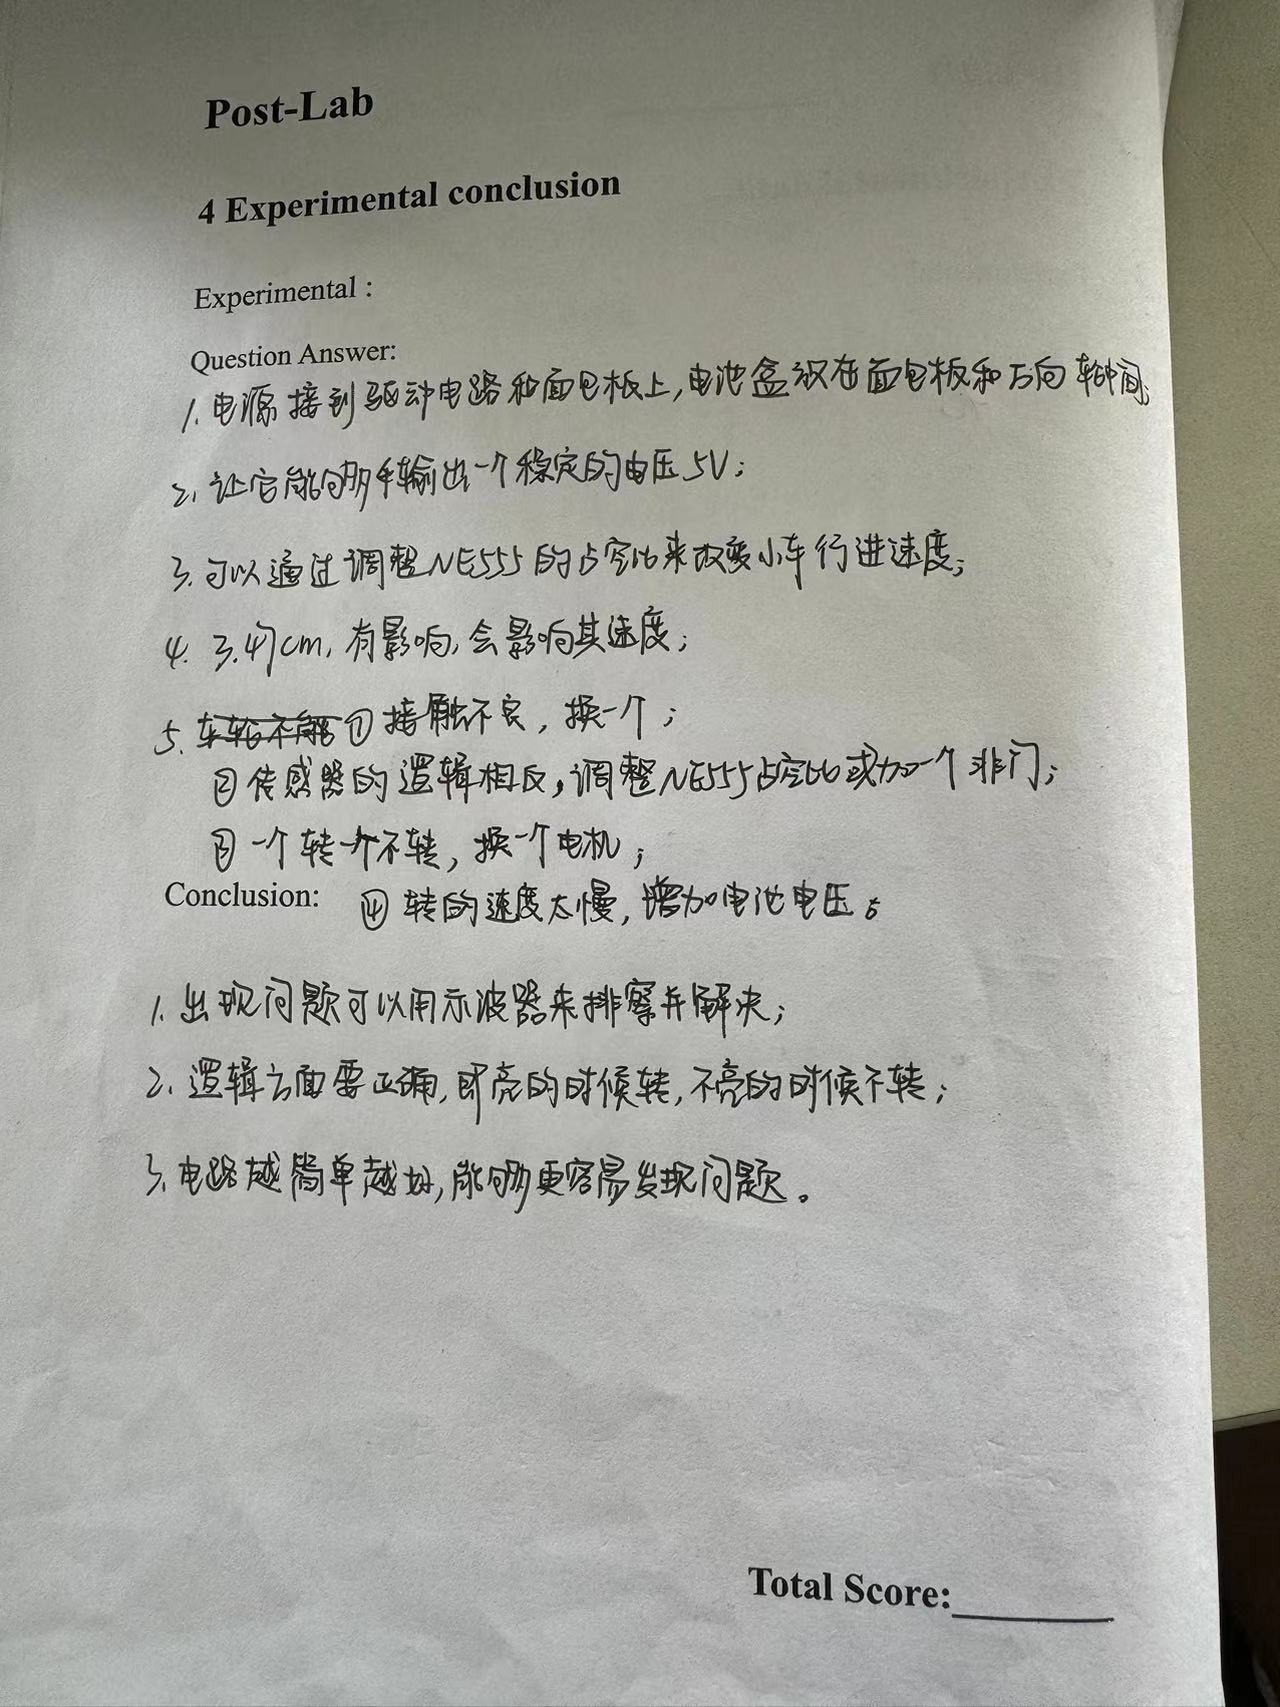 Post-Lab
4 Experimental conclusion
Experimental :
Question Answer:
1. 电源接到驱动电路和面包板上,电池盒放在面包板和万向轮中间;
2. 让它能够输出一个稳定的电压5V;
3. 可以通过调整NE555的占空比来改变小车行进速度;
4. cm, 有影响, 会影响其速度;
5. ① 接触不良, 换一个;
② 传感器的逻辑相反, 调整NE555占空比或加一个非门;
③ 一个转一个不转, 换一个电机;
Conclusion: ④ 转的速度太慢, 增加电池电压。
1. 出现问题可以用示波器来排察并解决;
2. 逻辑方面要正确, 即亮的时候转, 不亮的时候不转;
3. 电路越简单越好, 能够更容易发现问题。
Total Score: